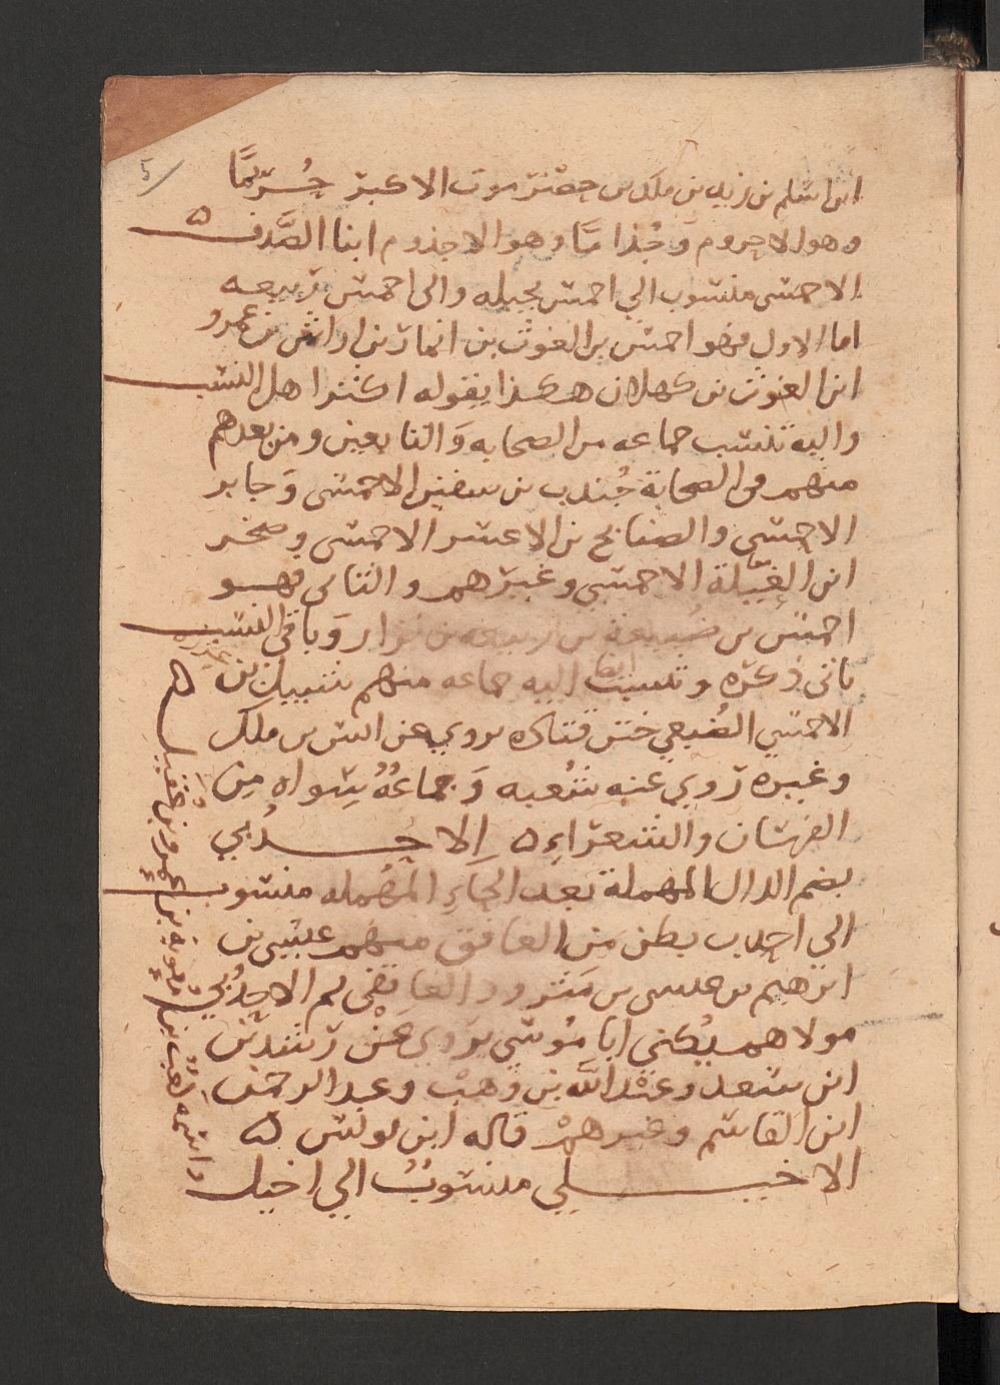 ابن اسلم بن زيد بن ملك بن حضرموت الاكبر جُرَيمًا
وهو الاجروم وَجُذامًا وهو الاجذوم ابنا الصَّدف ه
الاحمسى منسوب الي احمس بجيله والى احمس ربيعه
اما الاول فهو احمس بن الغوث بن انمار بن اراش بن عمرو
ابن الغوث بن كهلان هكذا يقوله اكثر اهل النسب
واليه تنسب جماعه من الصحابه وَالتابعين ومن بعدهم
منهم من الصحابة جُندب بن سفين الاحمسى وَجابر
الاحمسى والصنابح بن الاعسر الاحمسى وصخر
ابن العَيّلة الاحمسى وغيرهم والثانى فهو
احمس بن ضُبيعة بن ربيعه بن نزار وَباقى النسب
ياتى ذكره وتنسب ايضا اليه جماعه منهم شبيل بن عزره
الاحمسي الضُبعي ختن قتاده يروي عن انس بن ملك
وغيره روي عنه شُعبه وَجماعُهُ سِواه مِن
الفرسان والشعراءِ ه اِلاحْدُبي
بضم الدال المهملة بعد الحاءِ المهمله منسوب
الى احدب بطن من الغافق منهم عيسى بن
ابرهيم بن عيسى بن مَثرود الغافقى ثم الاحدُبي
مولاهم يُكنى ابا موسي يروي عن رشدين
ابن سعد وعبْد اللّه بن وَهبْ وعبد الرحمن
ابن القاسم وغيرهمْ قاله ابن يونس ه
الاخيلي منسوبُ الي اخيل
واسمه كعب بن معوية بن عمرو بن عقيل ه
5